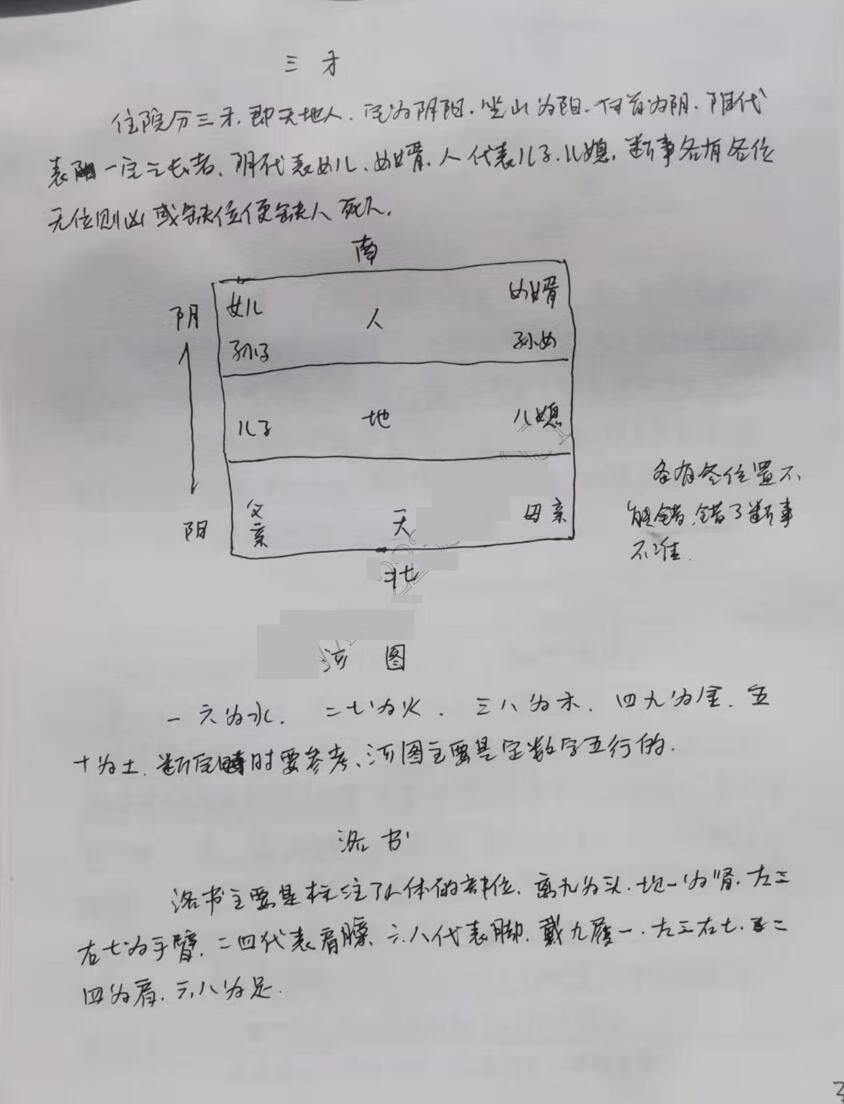 三才
住院分三才，即天地人，宅为阴阳，坐山为阳，向首为阴，阳代
表阳一宅之长者，阴代表女儿、女婿，人代表儿子、儿媳，断事各有各位
无位则凶或缺位便缺人死人。
南
阴 女儿 人 女婿
孙子 孙女
儿子 地 儿媳
各有各位置不
能错，错了断事
不准.
阳 父亲 天 母亲
北
河图
一六为水，二七为火，三八为木，四九为金，五
十为土，断宅时要参考、河图主要是定数字五行的.
洛书
洛书主要是标注了人体的部位，离九为头，坎一为肾，左三
右七为手臂，二四代表肩膀，六八代表脚，戴九履一，左三右七，二
四为肩，六八为足.
3